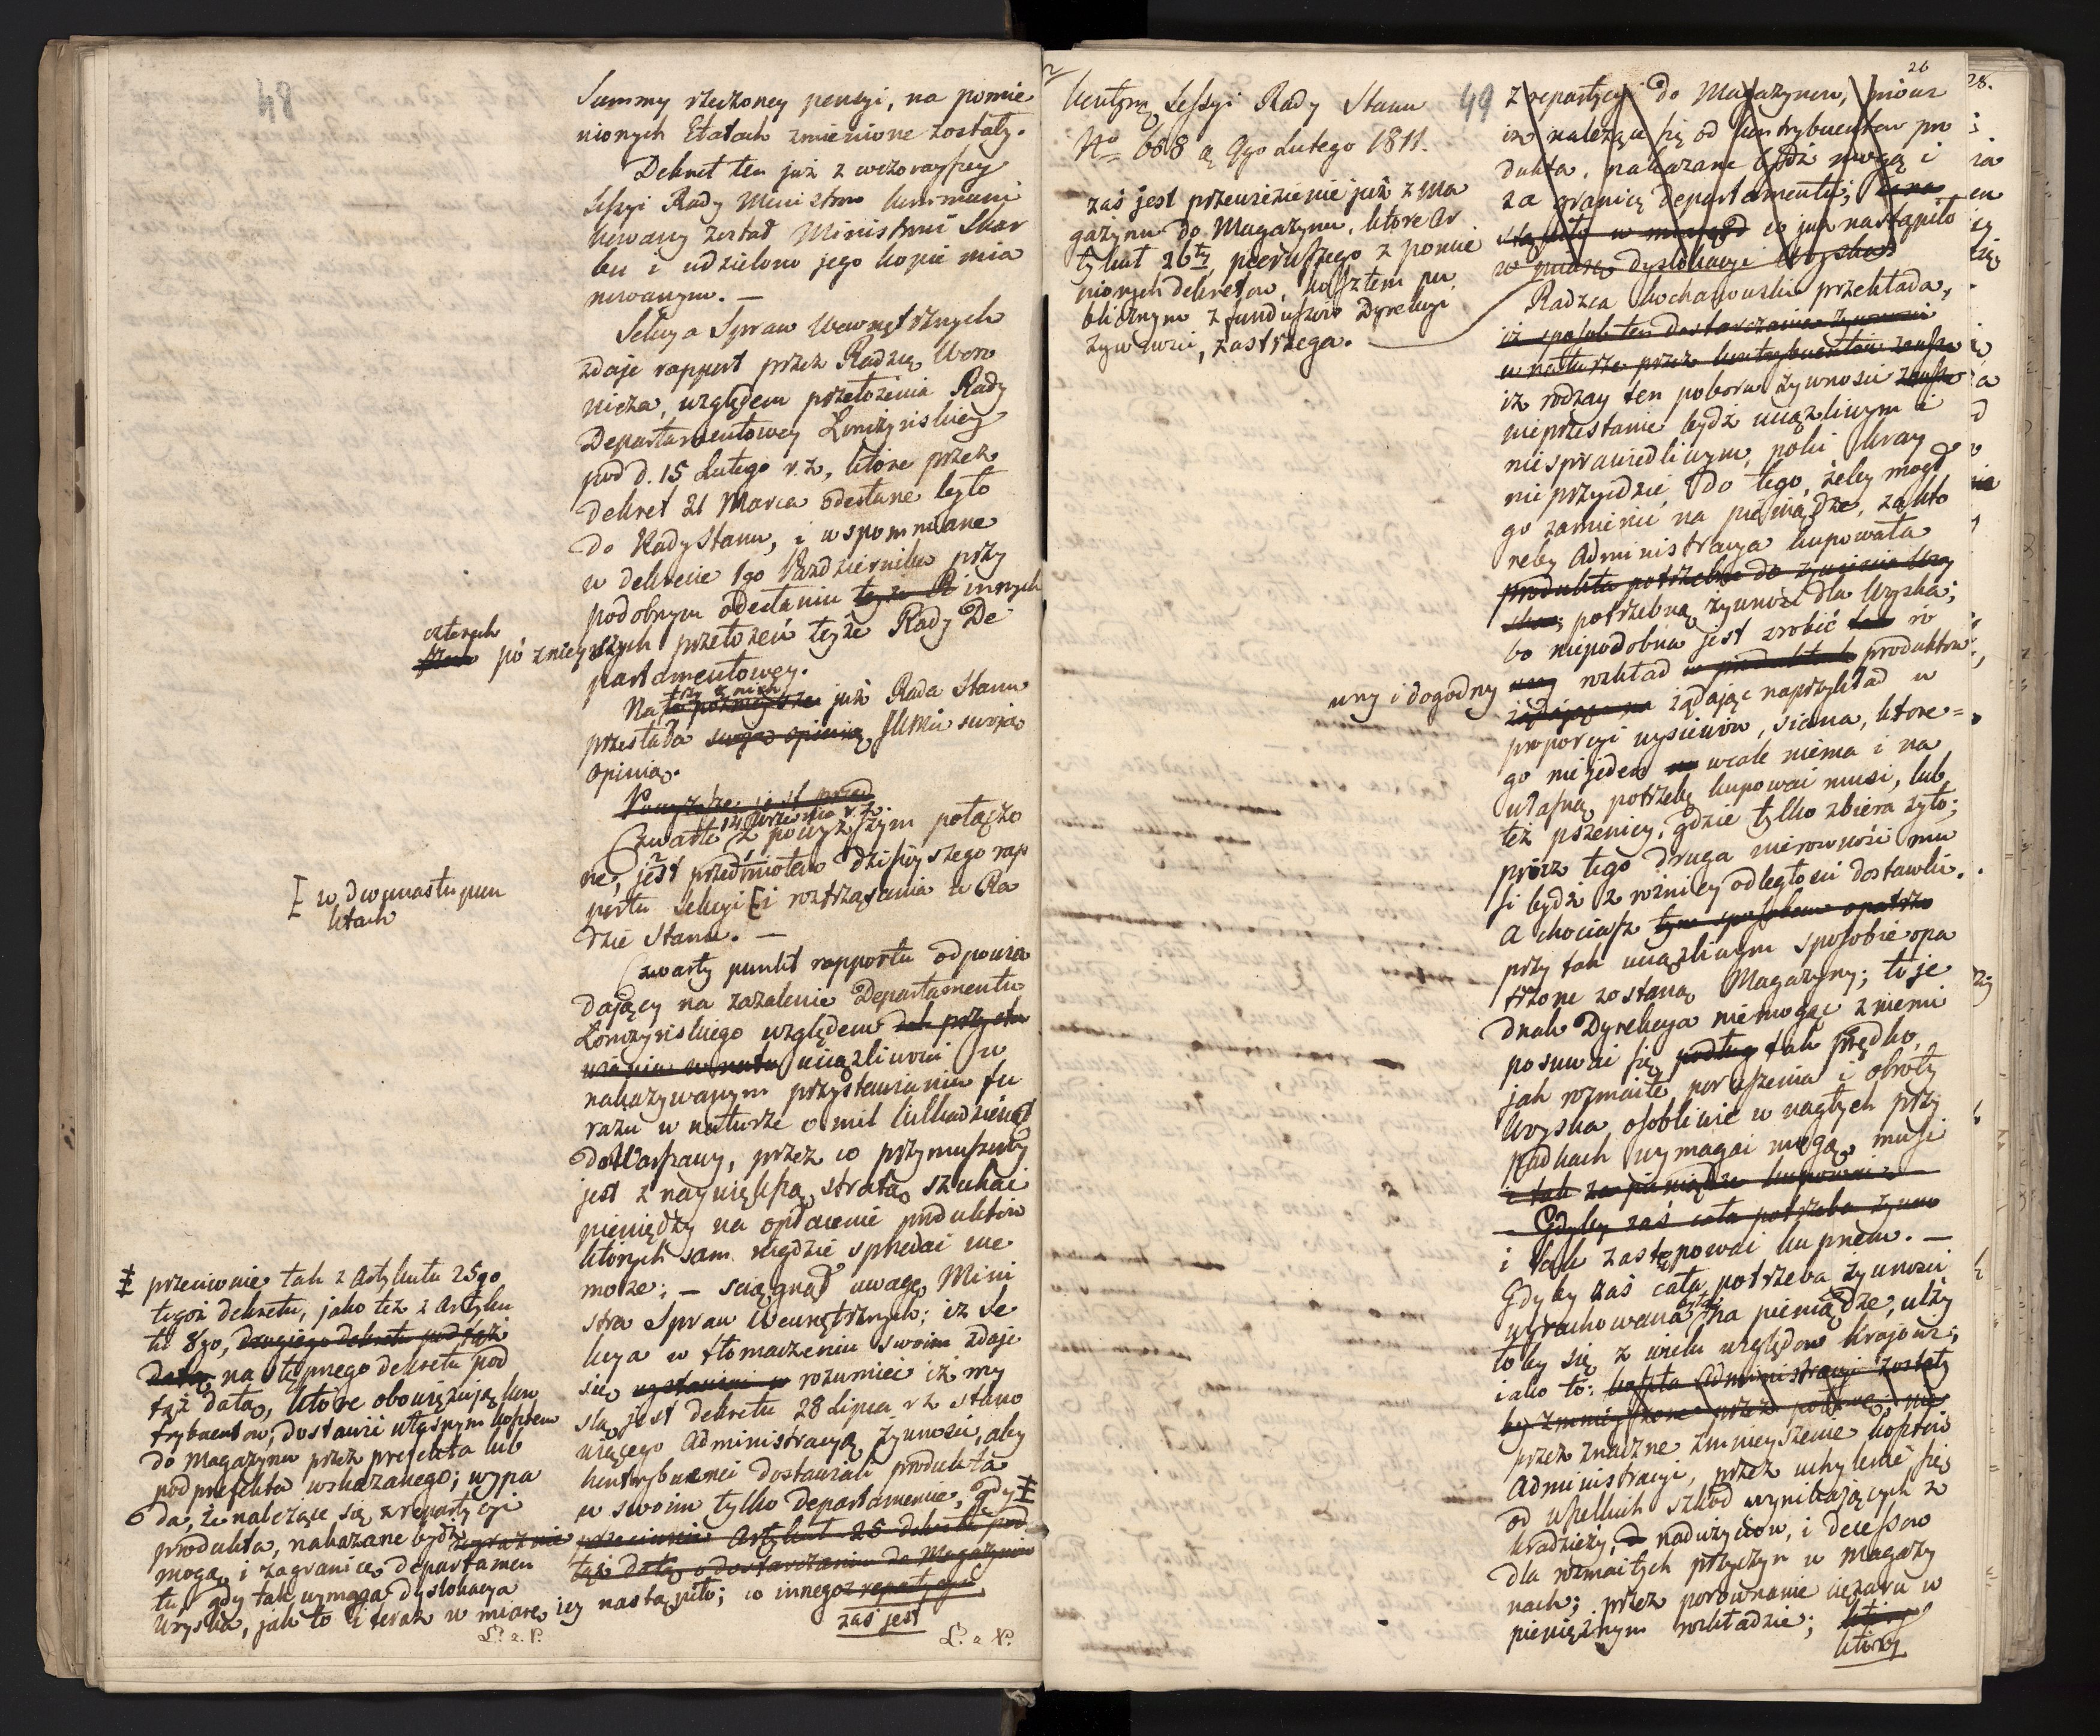 48
Summy rzeczoney pensyi, na pomie
nionych Etatach zmienione zostały.
Dekret ten już z wczorayszey
Sessyi Rady Ministrow kommuni
kowany został Ministrowi Skar
bu i udzielono jego kopie mia
nowanym. —
Sekcya Spraw Wewnętrznych
zdaje rapport przez Radzcę Woro
nicza, względem przełożenia Rady
Departamentowey Łomżyńskiey
pod d. 15 Lutego r. z., które przez
dekret 21 Marca odesłane było
do Rady Stanu, i wspomniane
w dekrecie 1go Października przy
podobnym odesłaniu teyże R innych
czterech
trzech poznieyszych przełożeń teyże Rady De
partamentowey.
trzy z nich
Na te poznieysze już Rada Stanu
przesłała swoję opinią JKMci swoją
opinią.
Powyższe jest przed
14 Września r. z.
Czwarte z powyższym połączo
ne, jest przedmiotem dzisieyszego rap
portu Sekcyi [ i roztrząsania w Ra
dzie Stanu. —
[ w dwunastu pun
ktach
Czwarty punkt rapportu odpowia
dający na zażalenie Departamentu
Łomżyńskiego względem
uciążliwości w
nakazywanym przystawianiu fu
rażu w naturze o mil kilkadziesiąt
do Warszawy, przez co przymuszony
jest z naywiększą stratą szukać
pieniędzy na opłacenie produktow
których sam nigdzie sprzedać nie
może; — sciągnął uwagę Mini
stra Spraw Wewnętrznych; iż Se
kcya w tłomaczeniu swoim zdaje
się rozumieć iż my
slą jest dekretu 28 Lipca r. z. stano
wiącego Administracyą żywności, aby
kontrybuenci dostawiali produkta
w swoim tylko departamencie, gdy ‡
przeciwnie Artykuł 25 dekretu pod
tąż datą o dostarczaniu do Magazynow
nastąpiło; co innego z repartycyi
zaś jest
‡ przeciwnie tak z Artykułu 25go
tegoż dekretu, jako też z Artyku
łu 8go, drugiego dekretu pod tąż
datą, następnego dekretu pod
tąż datą, które obowiązują kon
trybuentow, dostawić własnym kosztem
do Magazynu przez prefekta lub
podprefekta wskazanego; wypa
da, że należące się z repartycyi
produkta, nakazane bydź
mogą i za granicę departamen
tu gdy tak wymaga dyslokacya
Woyska, jak to i teraz w miarę jey
Ł. a. P.
Ł. a. P.
Kontyn. Sessyi Rady Stanu
No 668 d. 9go Lutego 1811.
zaś jest przewiezienie już z Ma
gazynu do Magazynu, które Ar
tykuł 26ty, pierwszego z pomie
nionych dekretow, kosztem pu
blicznym z funduszow Dyrekcyi
żywności, zastrzega.
49
26
z repartycyi do Magazynow, mowi
iż należące się od kontrybuentow pro
dukta, nakazane bydź mogą i
za granicę departamentu;
co już nastąpiło
w miarę dyslokacyi Woyska
Radzca Kochanowski przekłada,
iż sposob ten dostarczania żywności
w naturze przez kontrybuentow zawsze
iż rodzay ten poboru żywności zawsze
nieprzestanie bydź uciążliwym i
niesprawiedliwym, poki kray
nie przyidzie do tego, żeby mogł
go zamienić na pieniądze, za któ
reby Administracya kupowała
produkta potrzebne do żywienia Woy
ska; potrzebną żywność dla Woyska;
bo niepodobna jest zrobić ro
wny i dogodny rozkład produktow
żądając naprzykład w
proporcyi wysiewow, siana, które=
go nie jeden wcale niema i na
własną potrzebę kupować musi, lub
też pszenicy, gdzie tylko zbiera żyto;
procz tego druga nierowność mu
si bydź z rożnicy odległości dostawki.
A chociasz tym sposobem opatrzo
przy tak uciążliwym sposobie opa
trzone zostaną Magazyny; to je
dnak Dyrekcya niemogąc z niemi
posuwać się podług tak prędko,
jak rozmaite poruszenia i obroty
Woyska osobliwie w nagłych przy
padkach wymagać mogą, musi
i tak za pieniądze kupować.
— Gdyby zaś cała potrzeba żywno
i tak zastępować kupnem. —
Gdyby zaś cała potrzeba żywności
wyrachowana była na pieniądze, ulży
łoby się z wielu względow krajowi;
iako to: koszta Administracyi zostały
by zmnieyszone przez
przez znaczne zmnieyszenie kosztow
Administracyi, przez uchylenie się
od wszelkich szkod wynikających z
kradzieży, nadużyciow, i decessow
dla rozmaitych przyczyn w Magazy
nach; przez porownanie ciężaru w
pieniężnym rozkładzie; który
który